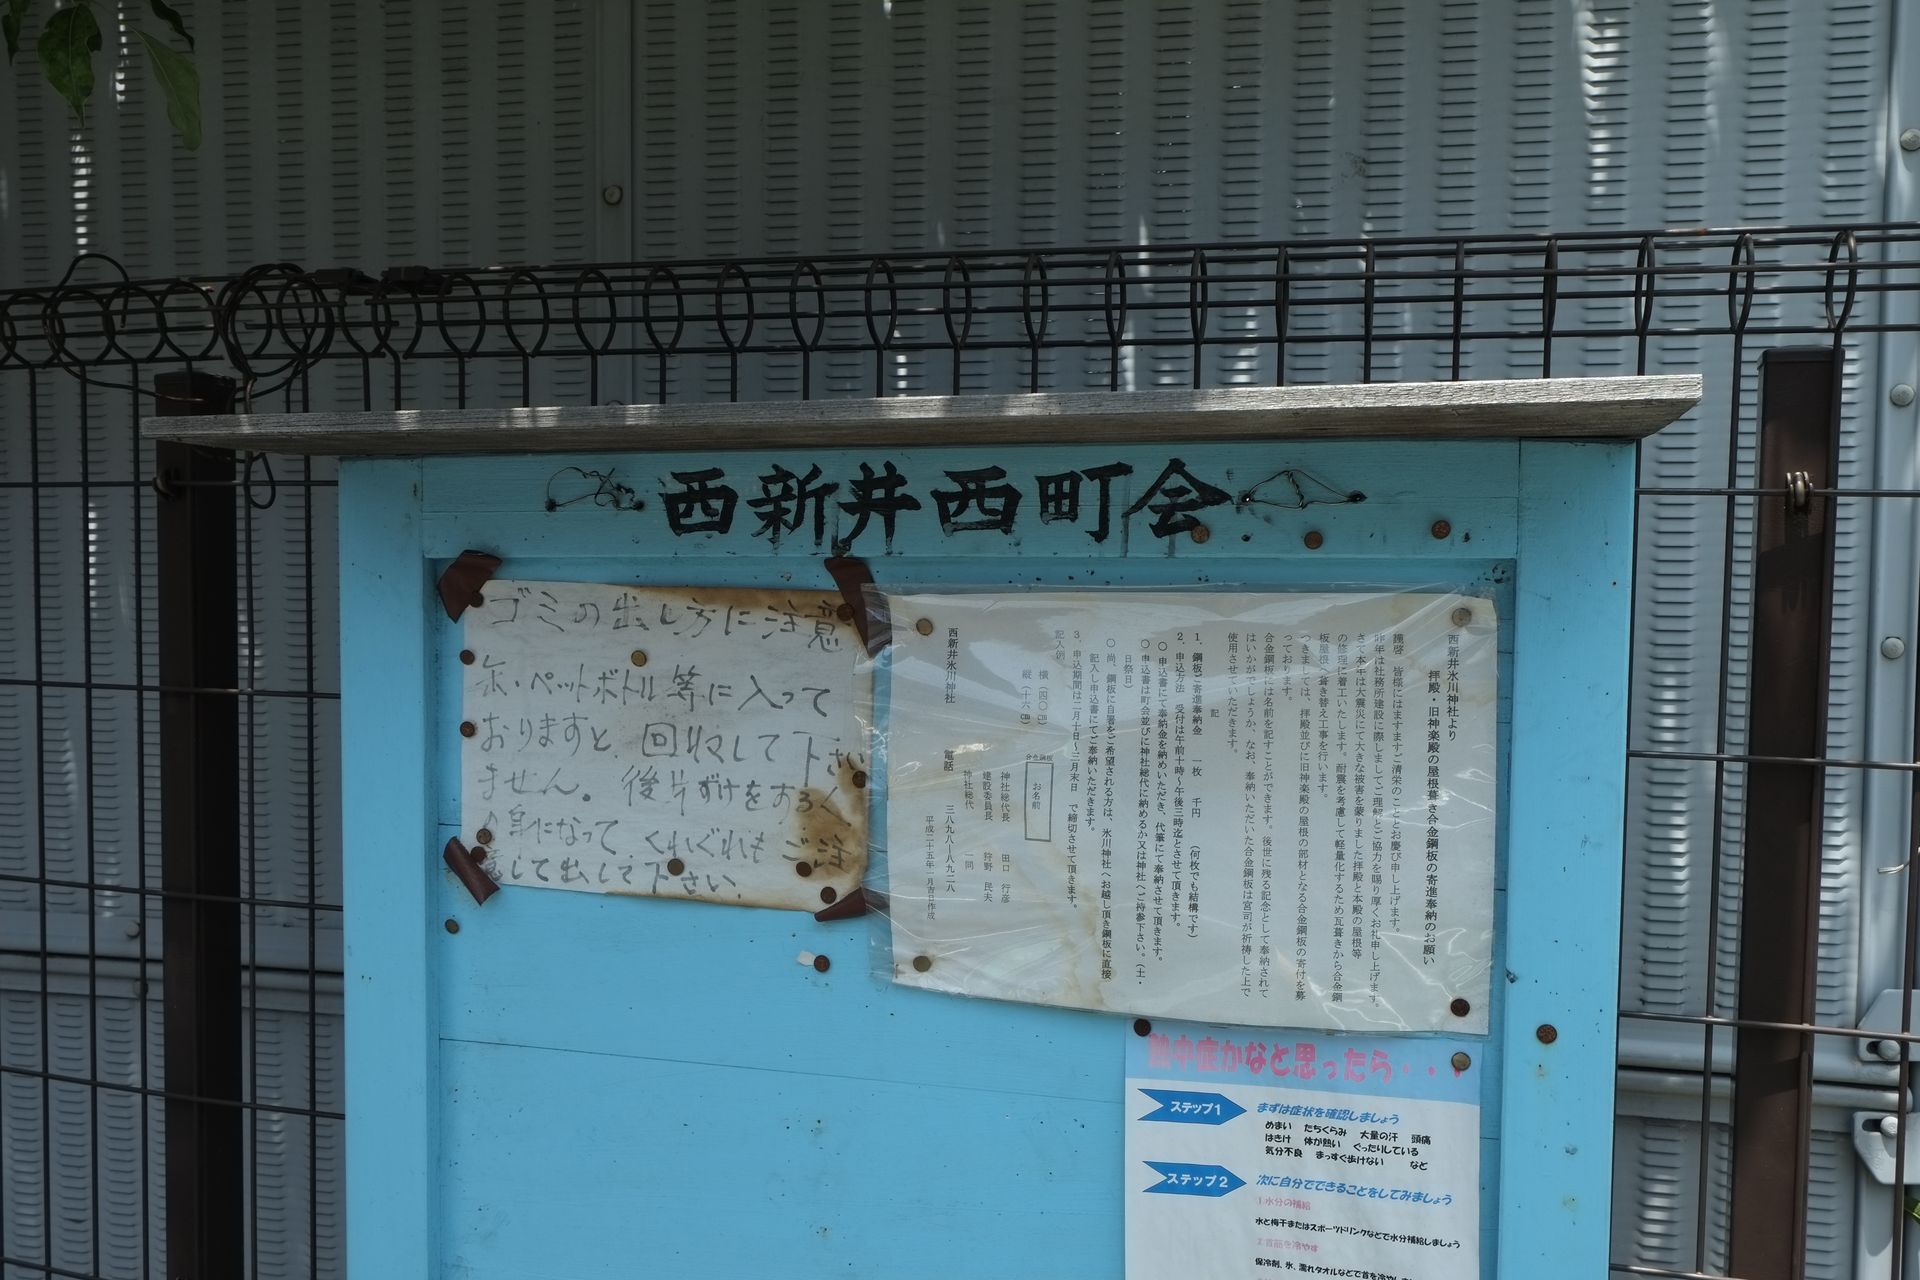 西新井西町会
ゴミの出し方に注意
缶・ペットボトル等に入って
おりますと、回収して下さい
ません。後片ずけをするく
身になって、くれぐれもご注
意して出して下さい、
西新井氷川神社より
拝殿・旧神楽殿の屋根葺き合金鋼板の寄進奉納のお願い
謹啓 皆様にはますますご清栄のこととお慶び申し上げます。
昨年は社務所建設に際しましてご理解とご協力を賜り厚くお礼申し上げます。
さて本年は大震災にて大きな被害を蒙りました拝殿と本殿の屋根等
の修理に着工いたします。耐震を考慮して軽量化するため瓦葺きから合金鋼
板屋根へ葺き替え工事を行います。
つきましては、拝殿並びに旧神楽殿の屋根の部材となる合金鋼板の寄付を募
っております。
合金鋼板には名前を記すことができます。後世に残る記念として奉納されて
はいかがでしょうか、なお、奉納いただいた合金鋼板は宮司が祈祷した上で
使用させていただきます。
記
1. 鋼板ご寄進奉納金 一枚 千円 (何枚でも結構です)
2. 申込方法 受付は午前十時~午後三時迄とさせて頂きます。
〇 申込書にて奉納金を納めいただき、代筆にて奉納させて頂きます。
〇 申込書は町会並びに神社総代に納めるか又は神社へご持参下さい。(土・
日祭日)
〇 尚、鋼板に自署をご希望される方は、氷川神社へお越し頂き鋼板に直接
記入し申込書にてご奉納いただきます。
3. 申込期間は二月十日~三月末日 で締切させて頂きます。
記入例、
横(四〇㎝)
縦(十六㎝)
合金鋼板
お名前
神社総代長 田口 行彦
建設委員長 狩野 民夫
神社総代 一同
西新井氷川神社 電話 三八九八ー八九二八
平成二十五年一月吉日作成
熱中症かなと思ったら・・・
ステップ1 まずは症状を確認しましょう
めまい たちくらみ 大量の汗 頭痛
はきけ 体が熱い ぐったりしている
気分不良 まっすぐ歩けない など
ステップ2 次に自分でできることをしてみましょう
1水分の補給
水と梅干またはスポーツドリンクなどで水分補給しましょう
2首筋を冷やす
保冷剤、氷、濡れタオルなどで首を冷やし